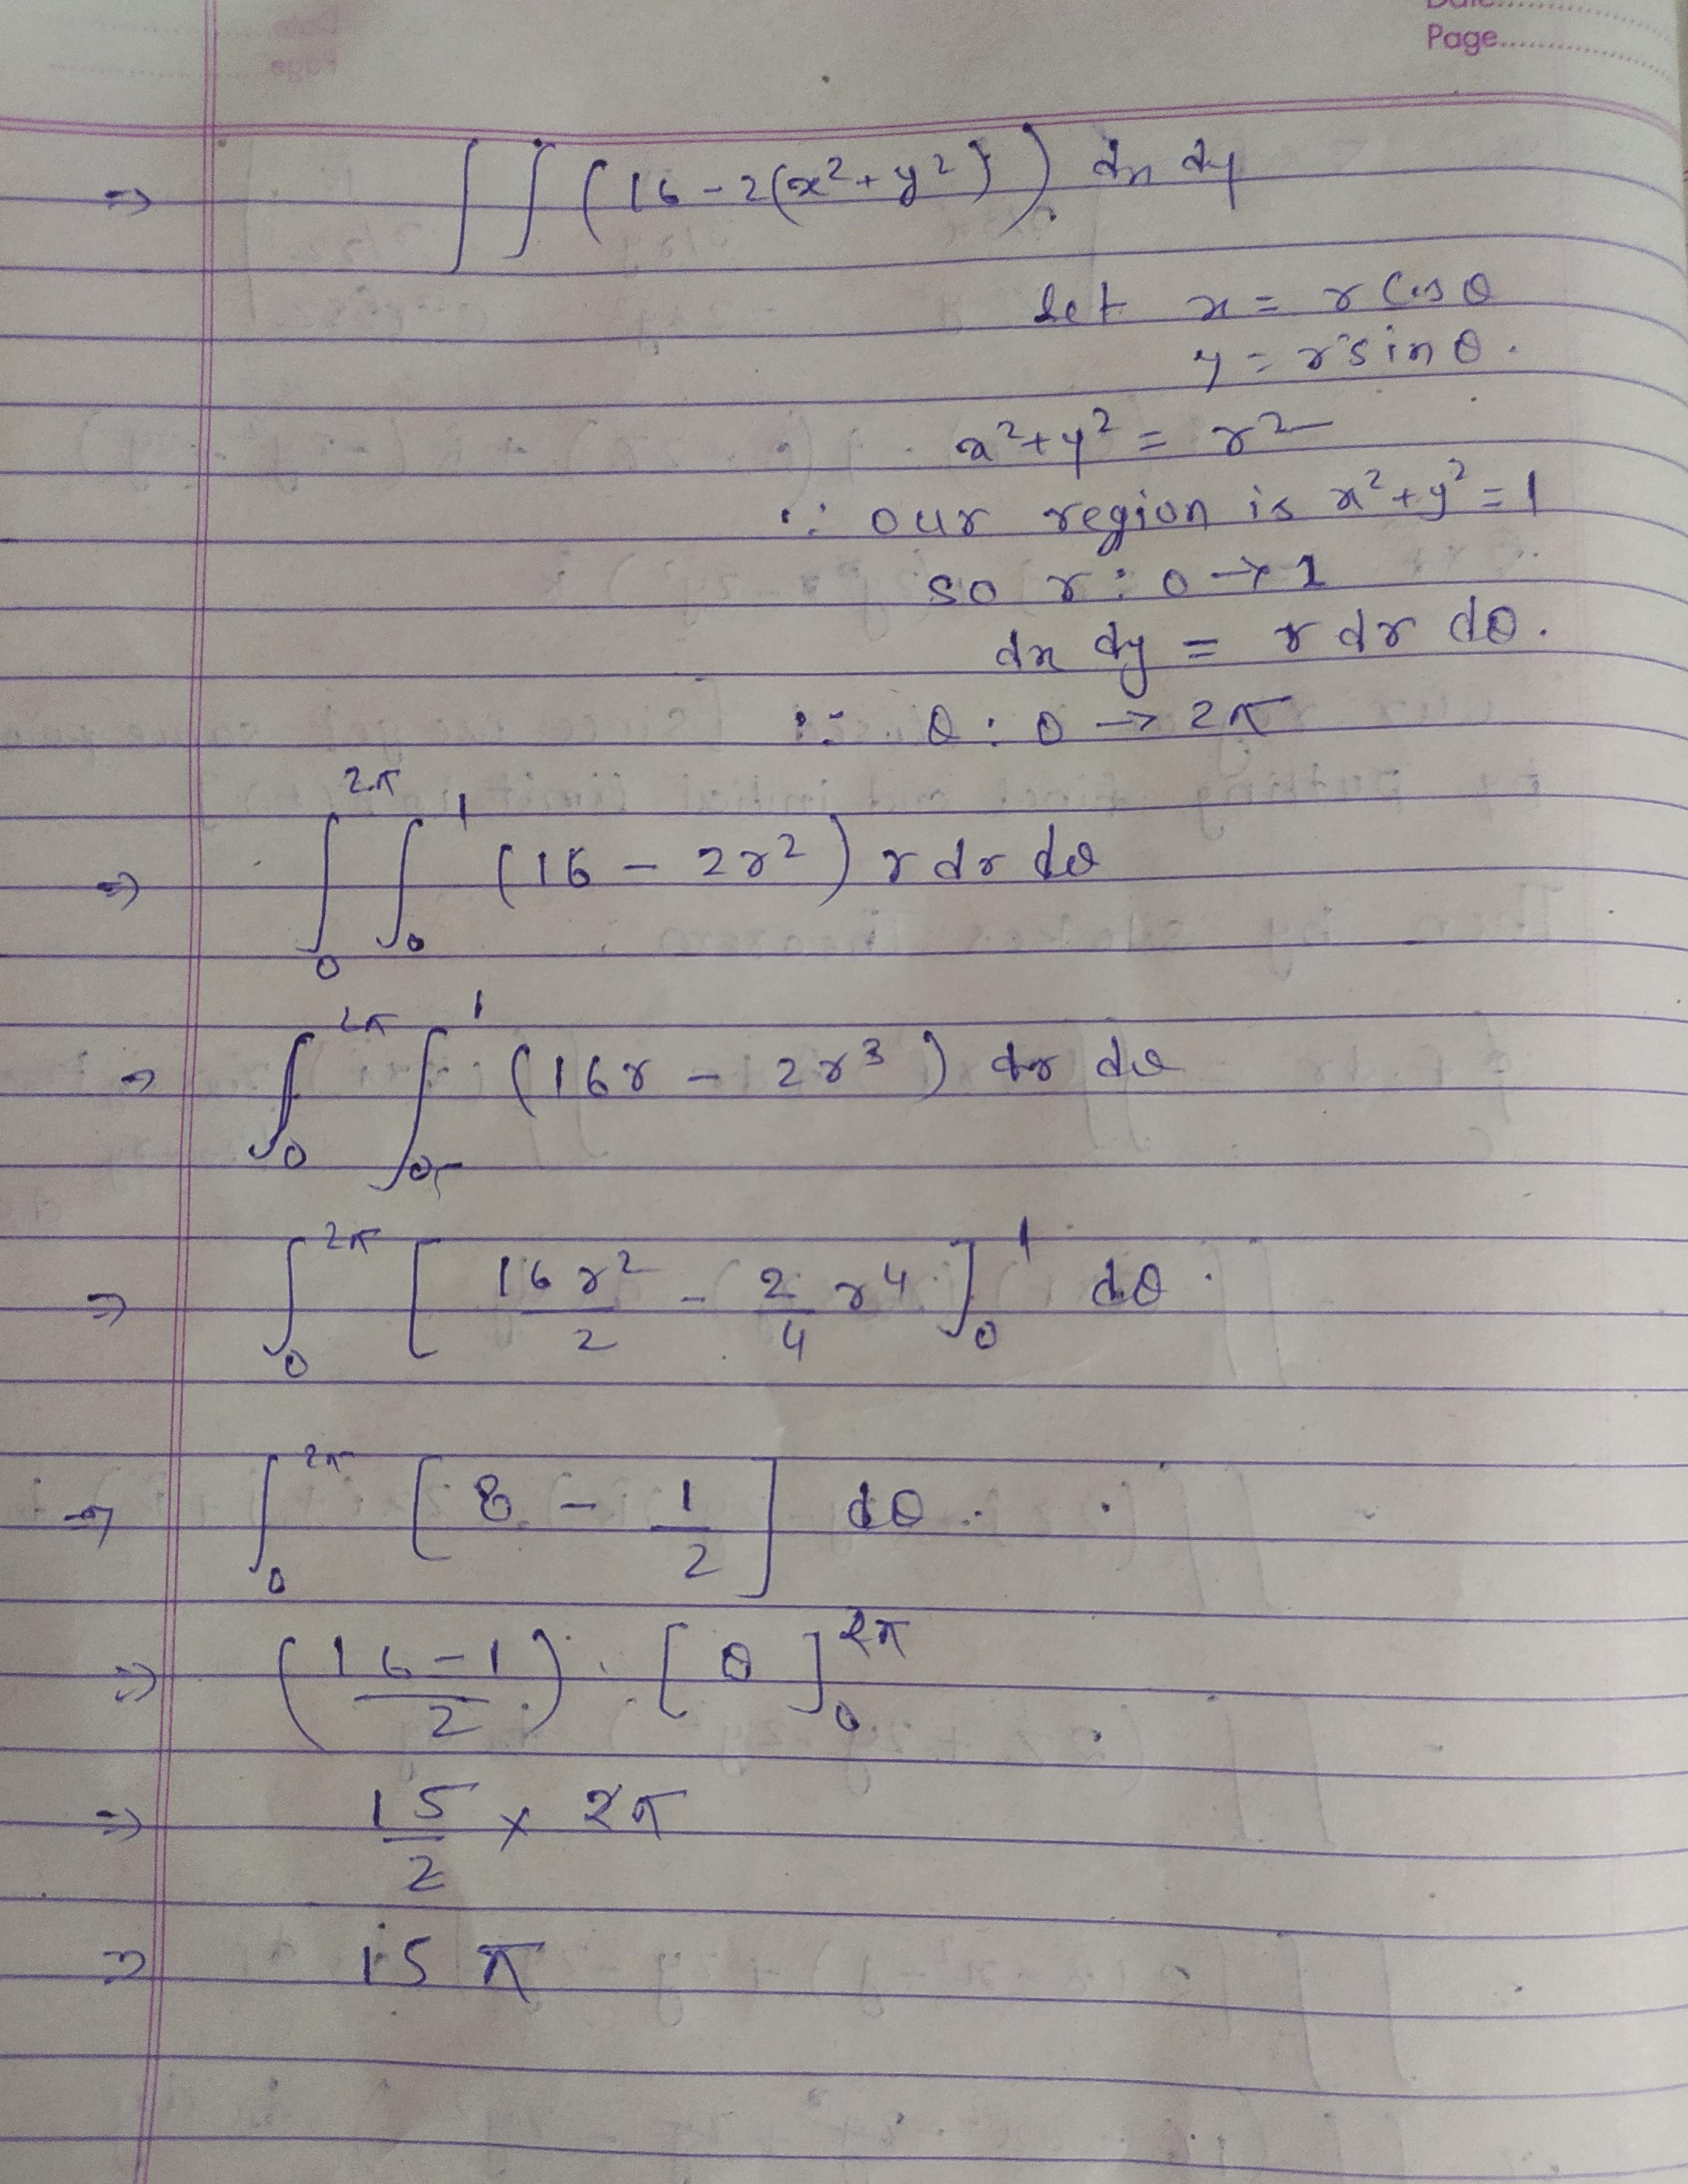 Date..........
Page..............
⇒ ∫∫ (16 - 2(x² + y²)) dx dy
Let x = r Cos θ
y = r sin θ.
x² + y² = r²
∵ our region is x² + y² = 1
so r : 0 → 1
dx dy = r dr dθ.
∵ θ : 0 → 2π
⇒ ∫₀^2π ∫₀^1 (16 - 2r²) r dr dθ
⇒ ∫₀^2π ∫₀^1 (16r - 2r³) dr dθ
⇒ ∫₀^2π [ 16r²/2 - 2/4 r⁴ ]₀^1 dθ.
⇒ ∫₀^2π [ 8 - 1/2 ] dθ.
⇒ (16-1/2) . [ θ ]₀^2π
⇒ 15/2 × 2π
⇒ 15 π